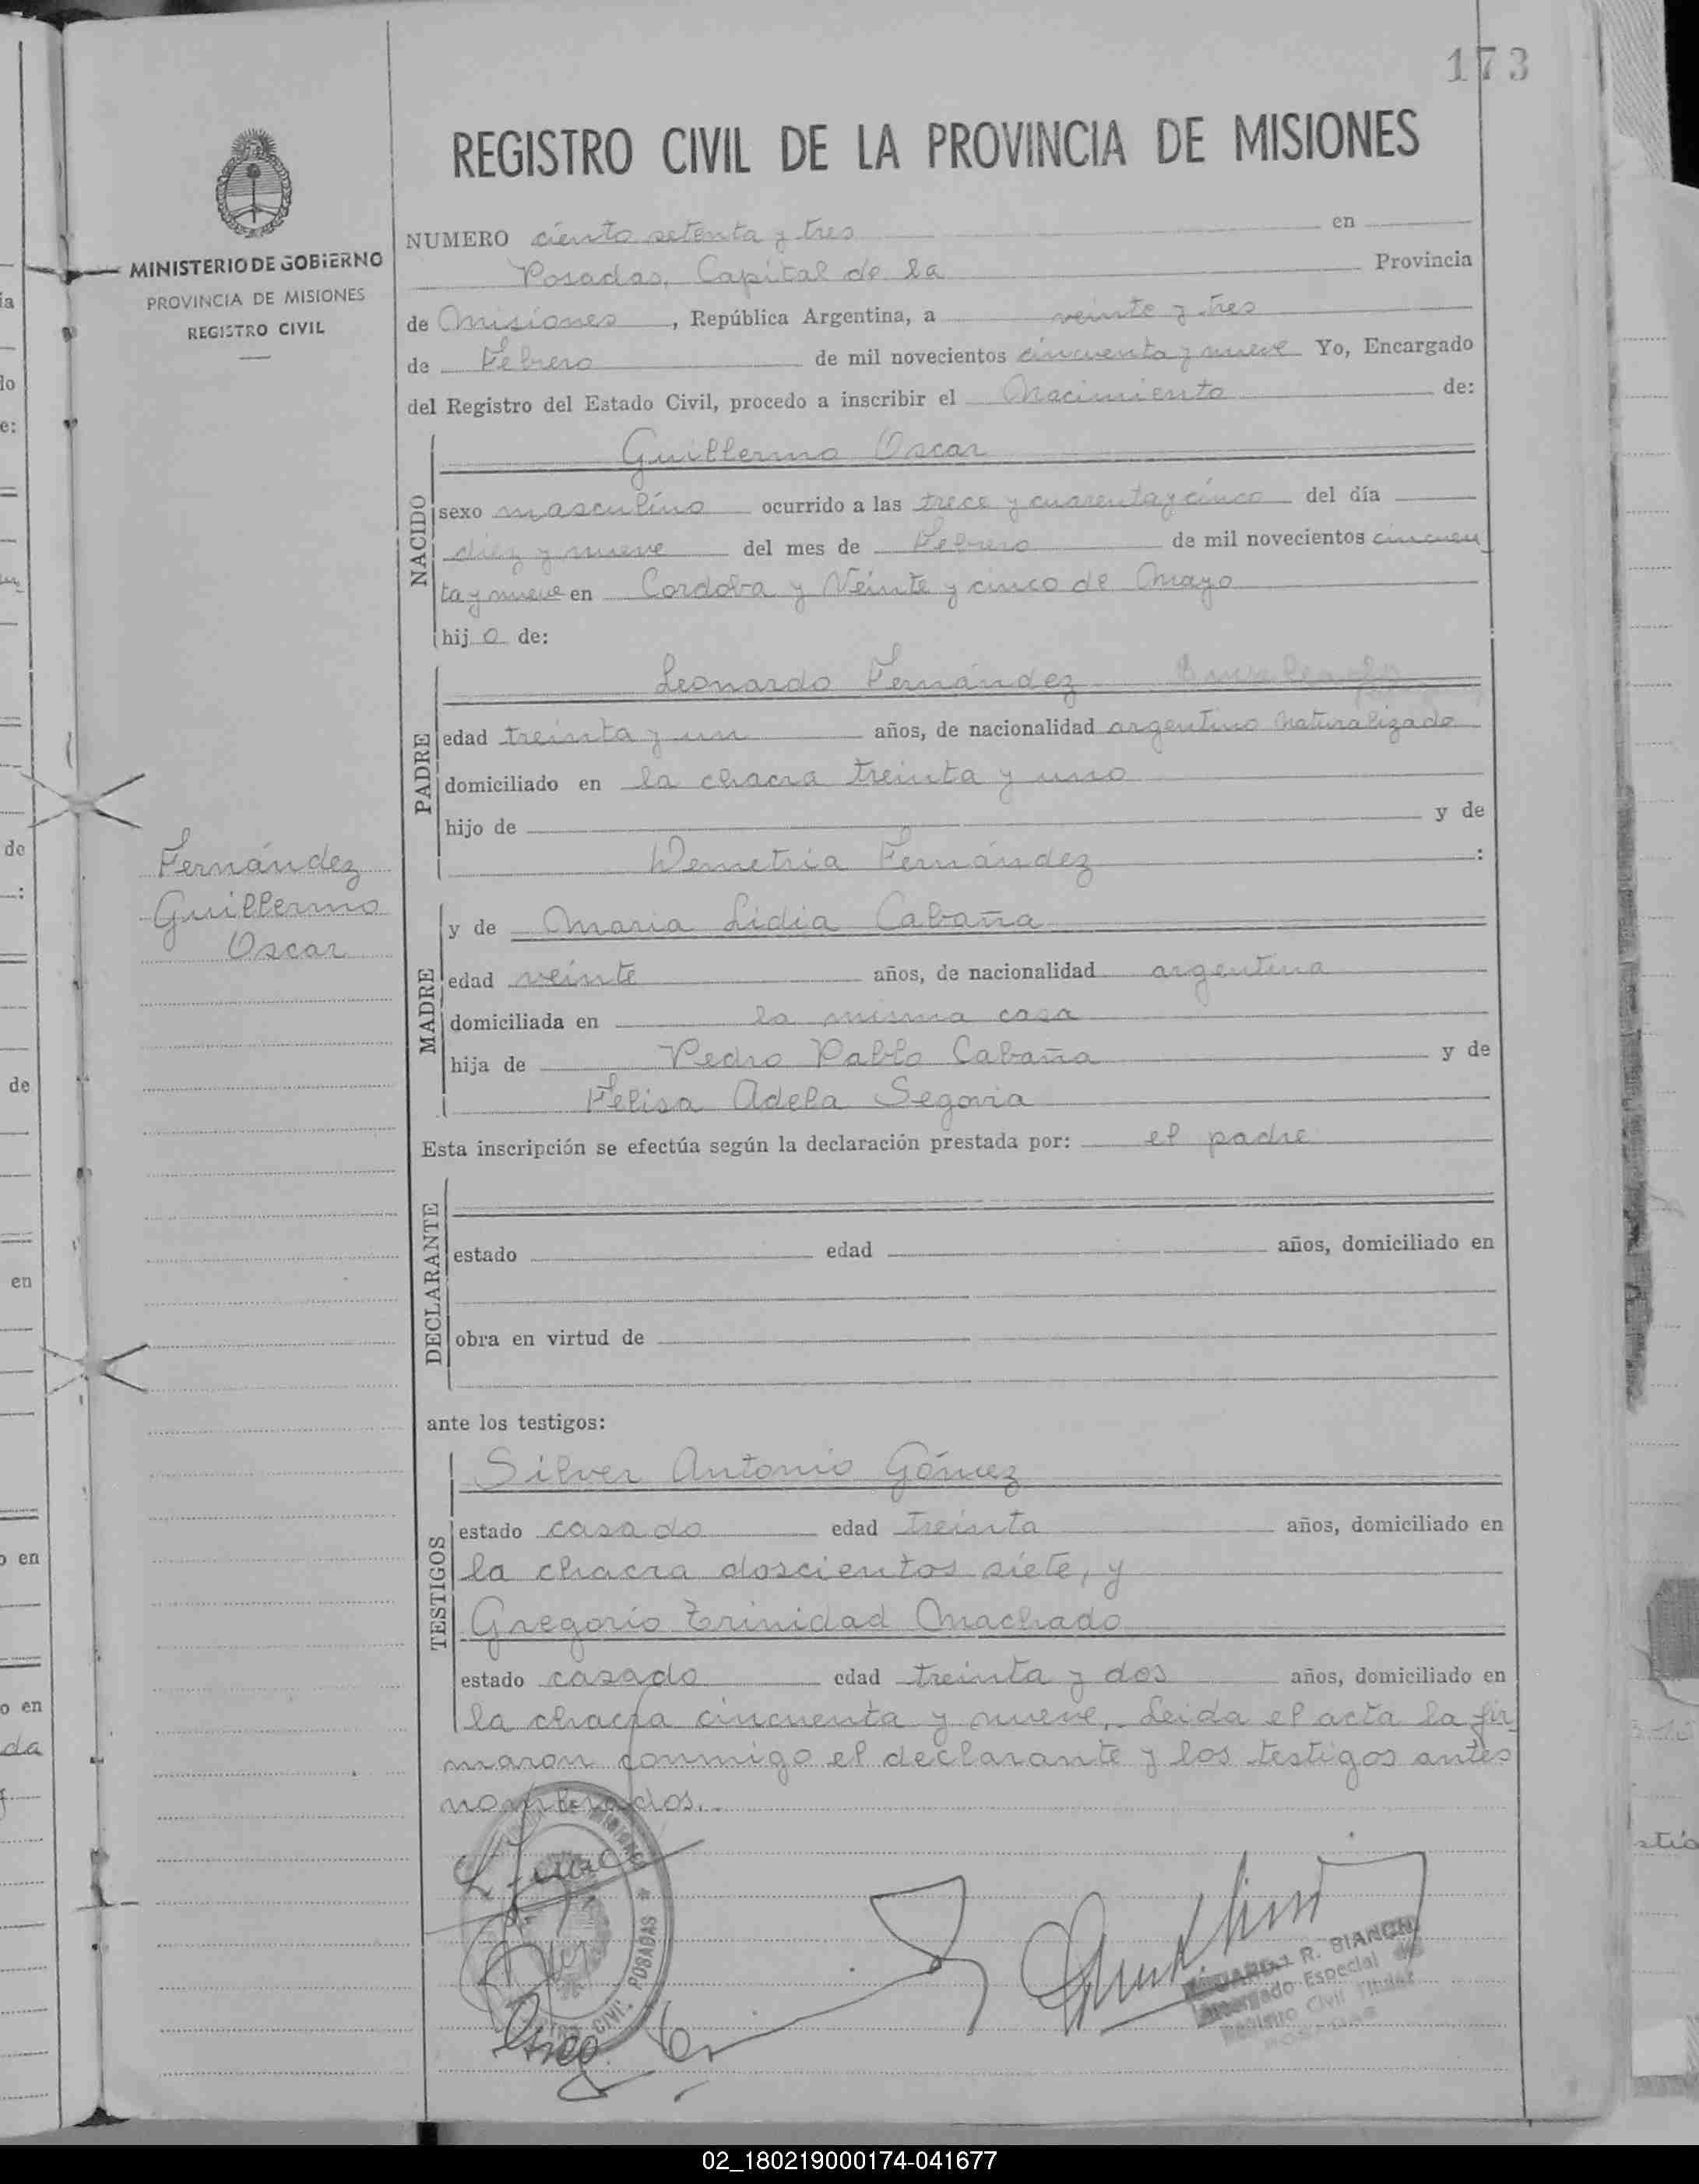 173
REGISTRO CIVIL DE LA PROVINCIA DE MISIONES
MINISTERIO DE GOBIERNO
PROVINCIA DE MISIONES
REGISTRO CIVIL
NUMERO ciento setenta y tres en
Posadas, Capital de la Provincia
de Misiones, República Argentina, a veinte y tres
de Febrero de mil novecientos cincuenta y nueve Yo, Encargado
del Registro del Estado Civil, procedo a inscribir el Nacimiento de:
NACIDO
Guillermo Oscar
sexo masculino ocurrido a las trece y cuarenta y cinco del día
diez y nueve del mes de Febrero de mil novecientos cincuen
ta y nueve en Cordoba y Veinte y cinco de Mayo
hij o de:
PADRE
Leonardo Fernández
edad treinta y un años, de nacionalidad argentino naturalizado
domiciliado en la chacra treinta y uno
hijo de y de
Demetria Fernández :
Fernández
Guillermo
Oscar
MADRE
y de Maria Lidia Cabaña
edad veinte años, de nacionalidad argentina
domiciliada en la misma casa
hija de Pedro Pablo Cabaña y de
Felisa Adela Segovia
Esta inscripción se efectúa según la declaración prestada por: el padre
DECLARANTE
estado edad años, domiciliado en
obra en virtud de
ante los testigos:
TESTIGOS
Silver Antonio Gómez
estado casado edad treinta años, domiciliado en
la chacra doscientos siete, y
Gregorio Trinidad Machado
estado casado edad treinta y dos años, domiciliado en
la chacra cincuenta y nueve, Leida el acta la fir
maron conmigo el declarante y los testigos antes
nombrados.
CIVIL POSADAS
R. BIANCHI
Encargado Especial
Registro Civil Titular
POSADAS
ia
lo
e:
de
:
de
en
o en
o en
da
02_180219000174-041677